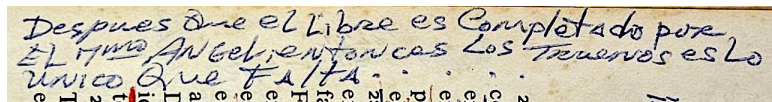 Despues Que el Libre es Completado por
EL 7mo ANGEL, entonces Los Truenos es Lo
UNICO QUE FALTA . . . . .